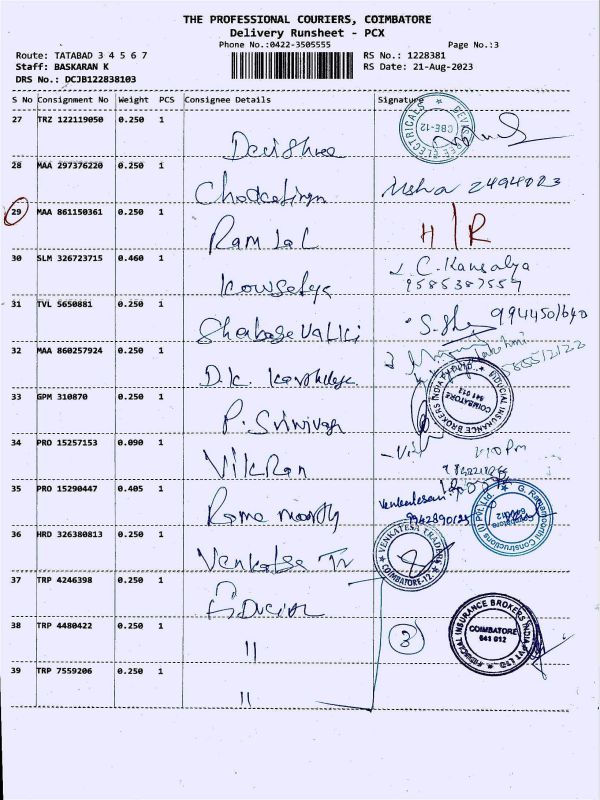 THE PROFESSIONAL COURIERS, COIMBATORE
Delivery Runsheet - PCX
Phone No.:0422-3505555 Page No.:3
Route: TATABAD 3 4 5 6 7 RS No.: 1228381
Staff: BASKARAN K RS Date: 21-Aug-2023
DRS No.: DCJB122838103
S No Consignment No Weight PCS Consignee Details Signature
27 TRZ 122119050 0.250 1
Devishree
28 MAA 297376220 0.250 1
Usha
29 MAA 861150361 0.250 1
Ram Lal H/R
30 SLM 326723715 0.460 1
Kowsalya C. Kansalya
9585387557
31 TVL 5650881 0.250 1
32 MAA 860257924 0.250 1
D.K.
FIDUCIAL INSURANCE BROKERS INDIA
COIMBATORE
641 012
33 GPM 310870 0.250 1
P. Srinivasan
34 PRO 15257153 0.090 1
Vikran
35 PRO 15290447 0.405 1
Rama moorthy Venkatesan
G. Ramamoorthy Constructions (I) Pvt. Ltd.
36 HRD 326380813 0.250 1
Venkatsa Tr
VENKATESA TRADERS
COIMBATORE-12.
37 TRP 4246398 0.250 1
38 TRP 4480422 0.250 1
" 3
FIDUCIAL INSURANCE BROKERS INDIA PVT LTD
COIMBATORE
641 012
39 TRP 7559206 0.250 1
"